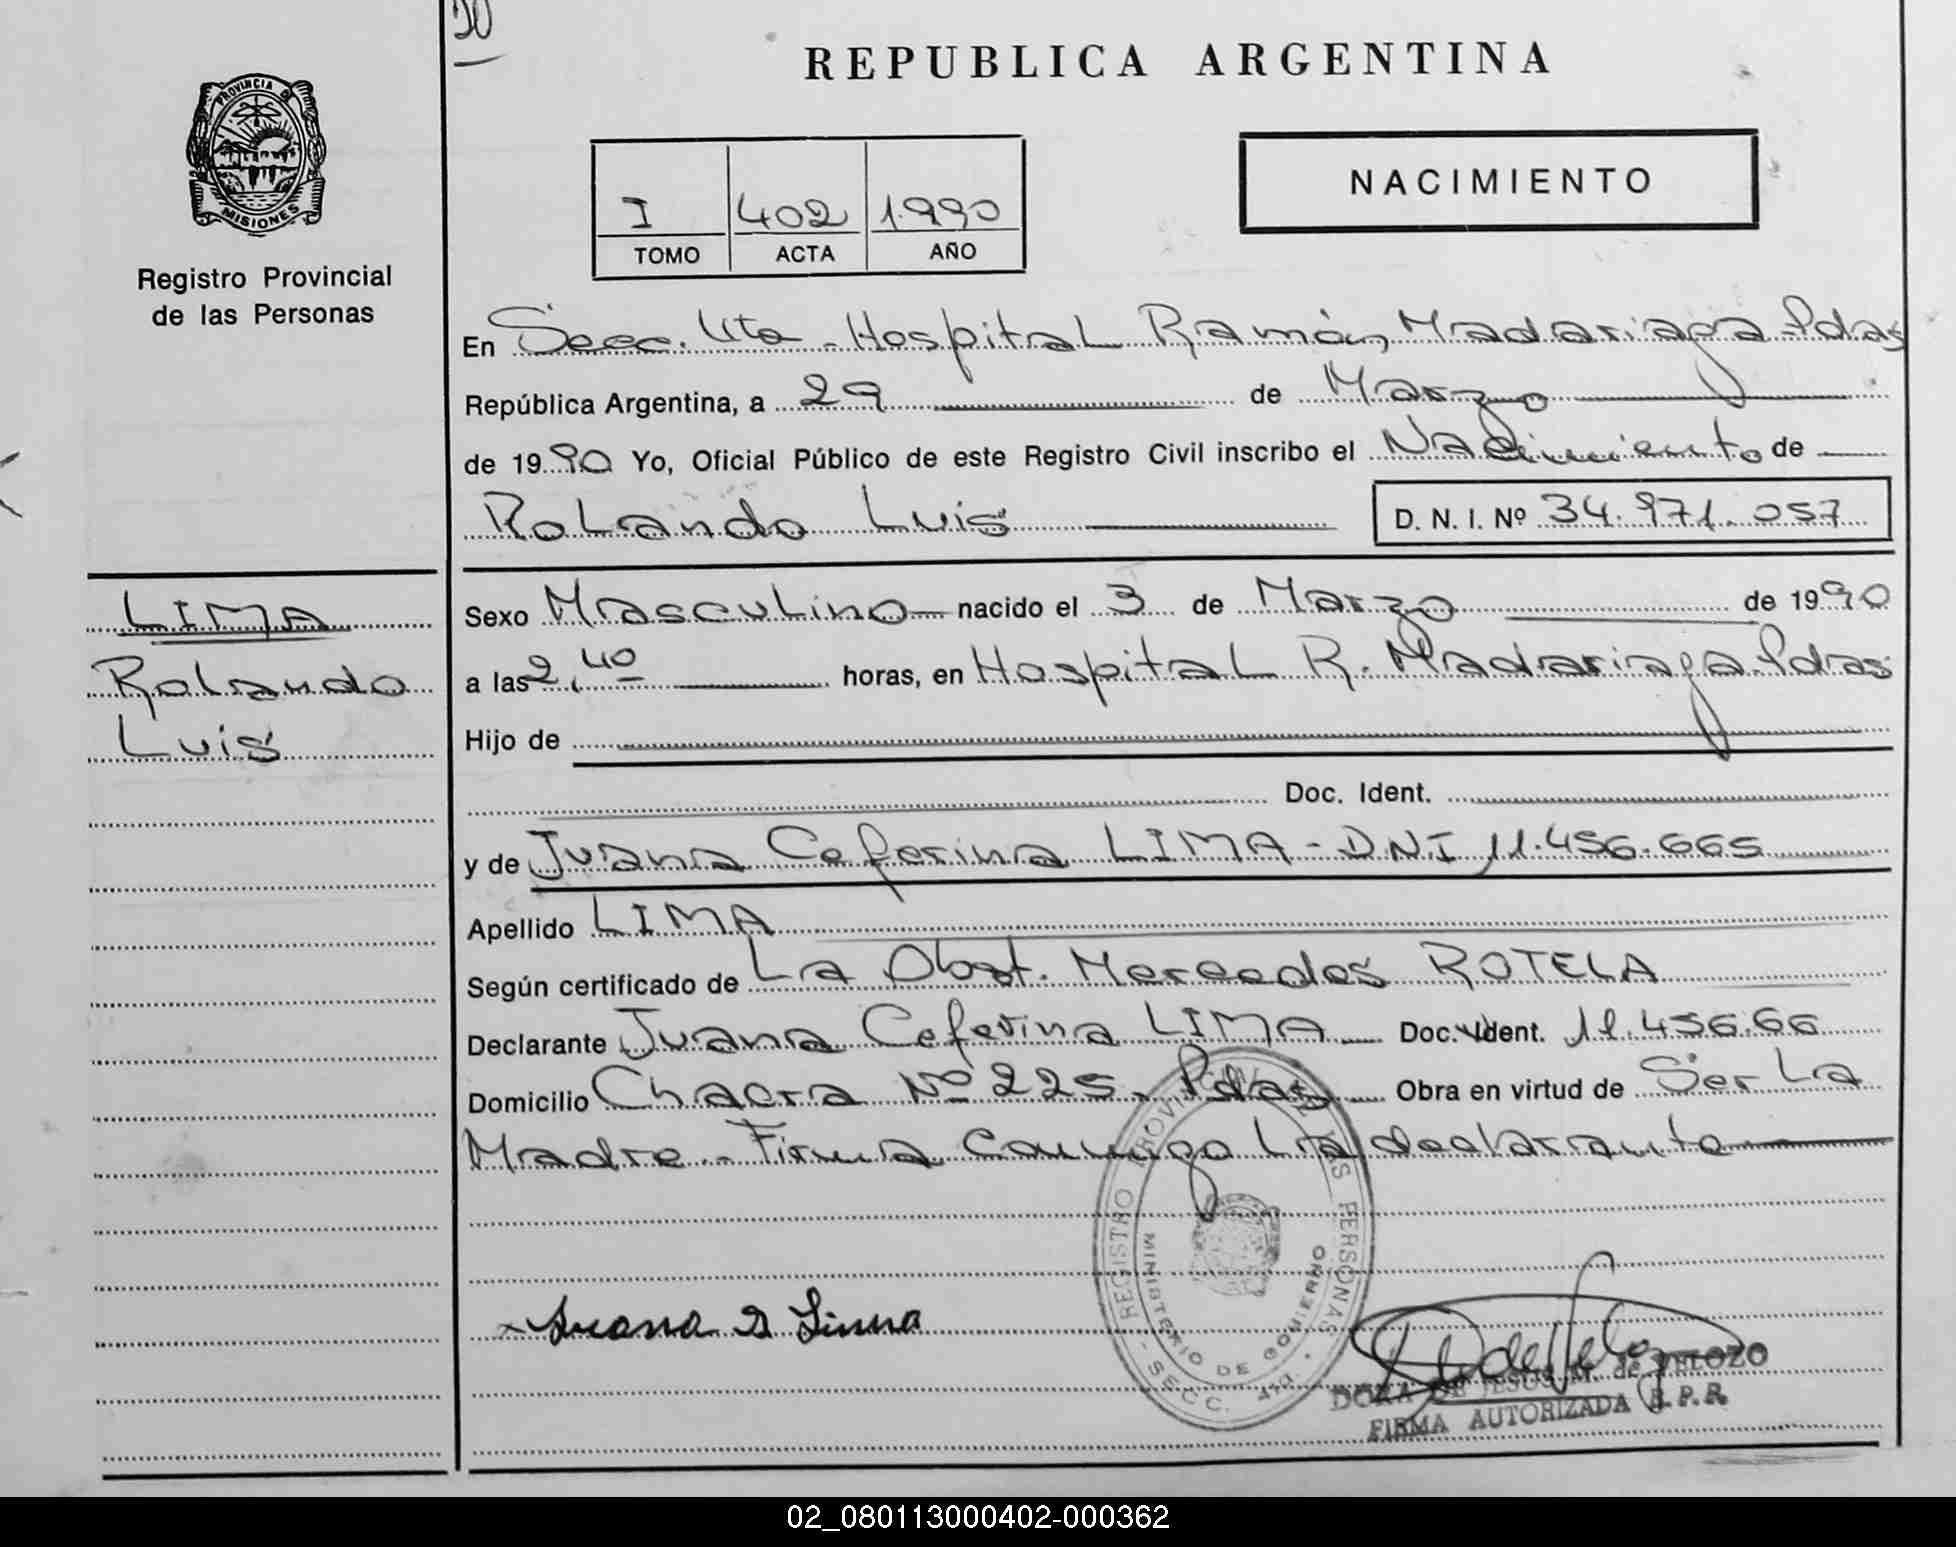 20
REPUBLICA ARGENTINA
PROVINCIA D MISIONES
NACIMIENTO
I 402 1.990
TOMO ACTA AÑO
Registro Provincial
de las Personas
En Secc. 4ta - Hospital Ramón Madariaga - Pdas
República Argentina, a 29 de Marzo
de 1990 Yo, Oficial Público de este Registro Civil inscribo el Nacimiento de
Rolando Luis D. N. I. Nº 34.971.057
LIMA
Rolando
Luis
Sexo Masculino nacido el 3 de Marzo de 1990
a las 2,40 horas, en Hospital R. Madariaga - Pdas
Hijo de
Doc. Ident.
y de Juana Ceferina LIMA - DNI 11.456.665
Apellido LIMA
Según certificado de La Obst. Mercedes ROTELA
Declarante Juana Ceferina LIMA Doc. Ident. 11.456.66
Domicilio Chacra Nº 225. Pdas Obra en virtud de Ser La
Madre - Firma Conmigo La declarante
REGISTRO PROVINCIAL DE LAS PERSONAS
MINISTERIO DE GOBIERNO
- SECC. 4TA -
Juana Lima
DORA DE JESUS M. de VELOZO
FIRMA AUTORIZADA R.P.R
02_080113000402-000362